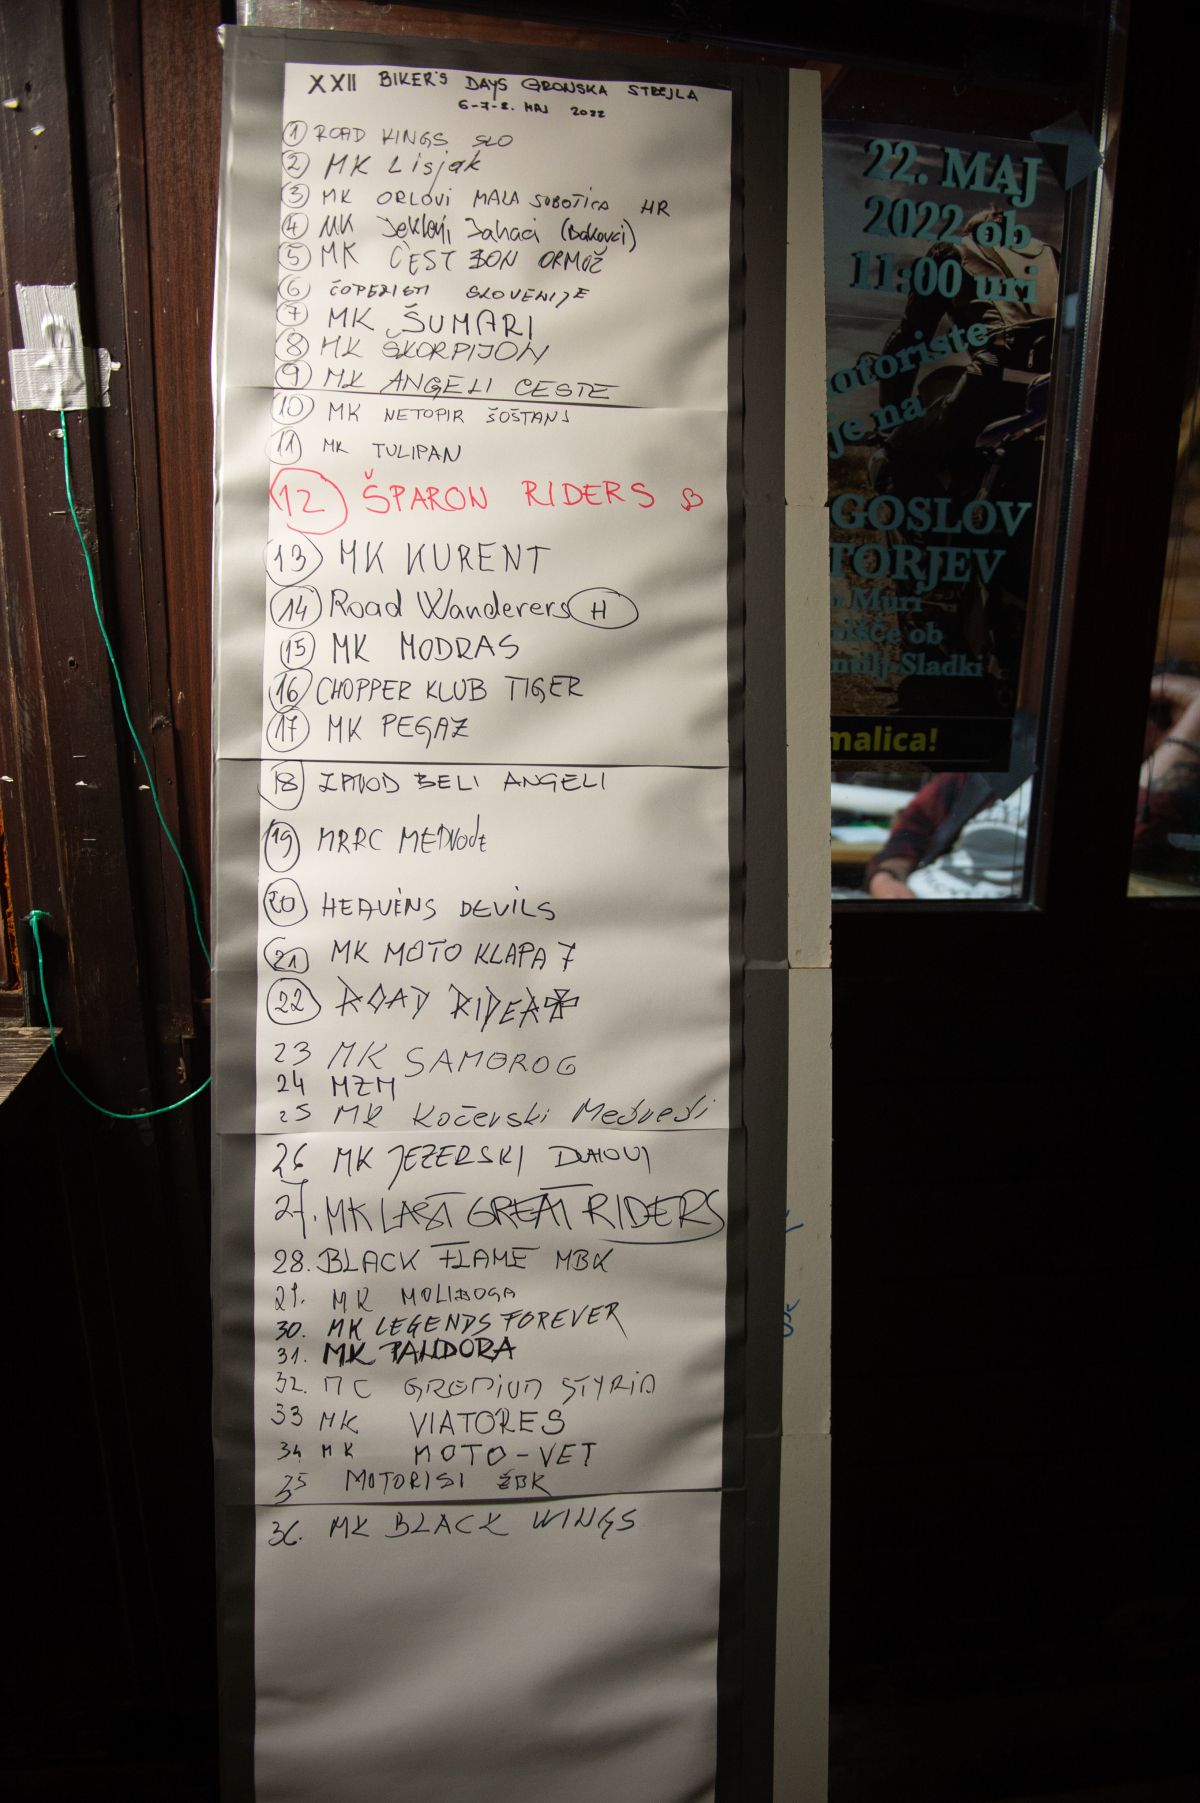 XXII BIKER'S DAYS GRONSKA STREJLA
6-7-8. MAJ 2022
1 ROAD KINGS SLO
2 MK Lisjak
3 MK ORLOVI MALA SUBOTICA HR
4 MK Jekleni Jahači (Bakovci)
5 MK C'EST BON ORMOŽ
6 ČOPERISTI SLOVENIJE
7 MK ŠUMARI
8 MK ŠKORPIJON
9 MK ANGELI CESTE
10 MK NETOPIR ŠOŠTANJ
11 MK TULIPAN
12 ŠPARON RIDERS
13 MK KURENT
14 Road Wanderers H
15 MK MODRAS
16 CHOPPER KLUB TIGER
17 MK PEGAZ
18 ZAVOD BELI ANGELI
19 MRRC MEDVode
20 HEAVENS DEVILS
21 MK MOTO KLAPA 7
22 ROAD RIDER
23 MK SAMOROG
24 MZM
25 MK Kočevski Medvedi
26 MK JEZERSKI DUHOVI
27. MK LAST GREAT RIDERS
28. BLACK FLAME MBK
29. MK MOLIBOGA
30. MK LEGENDS FOREVER
31. MK PANDORA
32. MC GREMIUM STYRIA
33 MK VIATORES
34 MK MOTO-VET
35 MOTORISI ŽBK
36. MK BLACK WINGS
22. MAJ
2022 ob
11:00 uri
otoriste
je na
GOSLOV
TORJEV
Muri
rišče ob
ntilj-Sladki
malica!